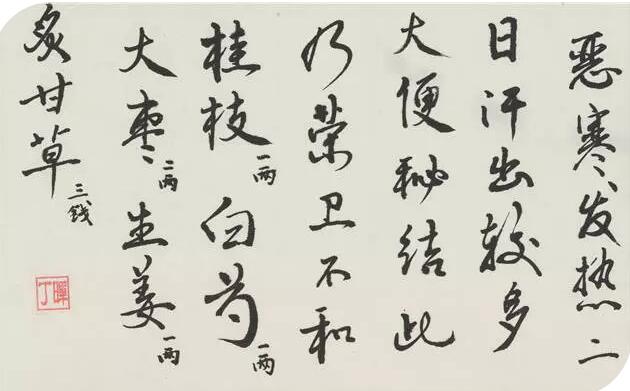 恶寒发热二
日汗出较多
大便秘结此
乃荣卫不和
桂枝一两 白芍一两
大枣二两 生姜一两
炙甘草三钱